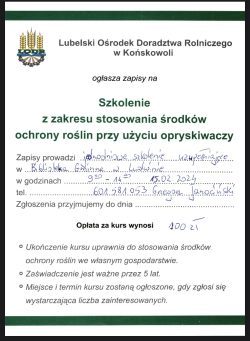 Lubelski Ośrodek Doradztwa Rolniczego
w Końskowoli
ogłasza zapisy na
Szkolenie
z zakresu stosowania środków
ochrony roślin przy użyciu opryskiwaczy
Zapisy prowadzi jednodniowe szkolenie uzupełniające
w Biblioteka Gminna w
w godzinach 9:00 - 14:00 15.02.2024
tel. 601581053
Zgłoszenia przyjmujemy do dnia
Opłata za kurs wynosi 100 zł
Ukończenie kursu uprawnia do stosowania środków
ochrony roślin we własnym gospodarstwie.
Zaświadczenie jest ważne przez 5 lat.
Miejsce i termin kursu zostaną ogłoszone, gdy zgłosi się
wystarczająca liczba zainteresowanych.